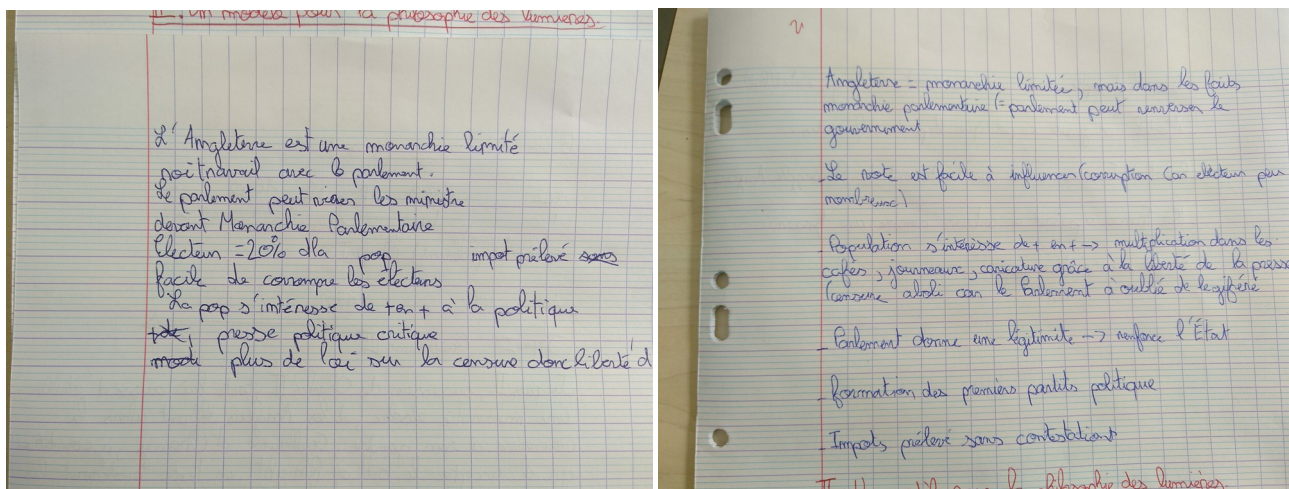 II. Un modèle pour la philosophie des lumières.
L'Angleterre est une monarchie limité
roi travail avec le parlement.
Le parlement peut virer les ministre
devant Monarchie Parlementaire
Electeur = 20% dla pop impot prélevé sans
facile de corrompre les électeurs
La pop s'intéresse de + en + à la politique
presse politique critique
plus de loi sur la censure donc liberté d
Angleterre = monarchie limitée, mais dans les faits
monarchie parlementaire (= parlement peut renverser le
gouvernement
- Le vote est facile à influencer (corruption car électeur peu
nombreux)
- Population s'intéresse de + en + -> multiplication dans les
cafés, journeaux, caricature grâce à la liberté de la presse
(censure aboli car le Parlement à oublié de légiféré
- Parlement donne une légitimité -> renforce l'État
- Formation des premiers partits politique
- Impots prélevé sans contestations
II. Un modèle pour la philosophie des lumières.